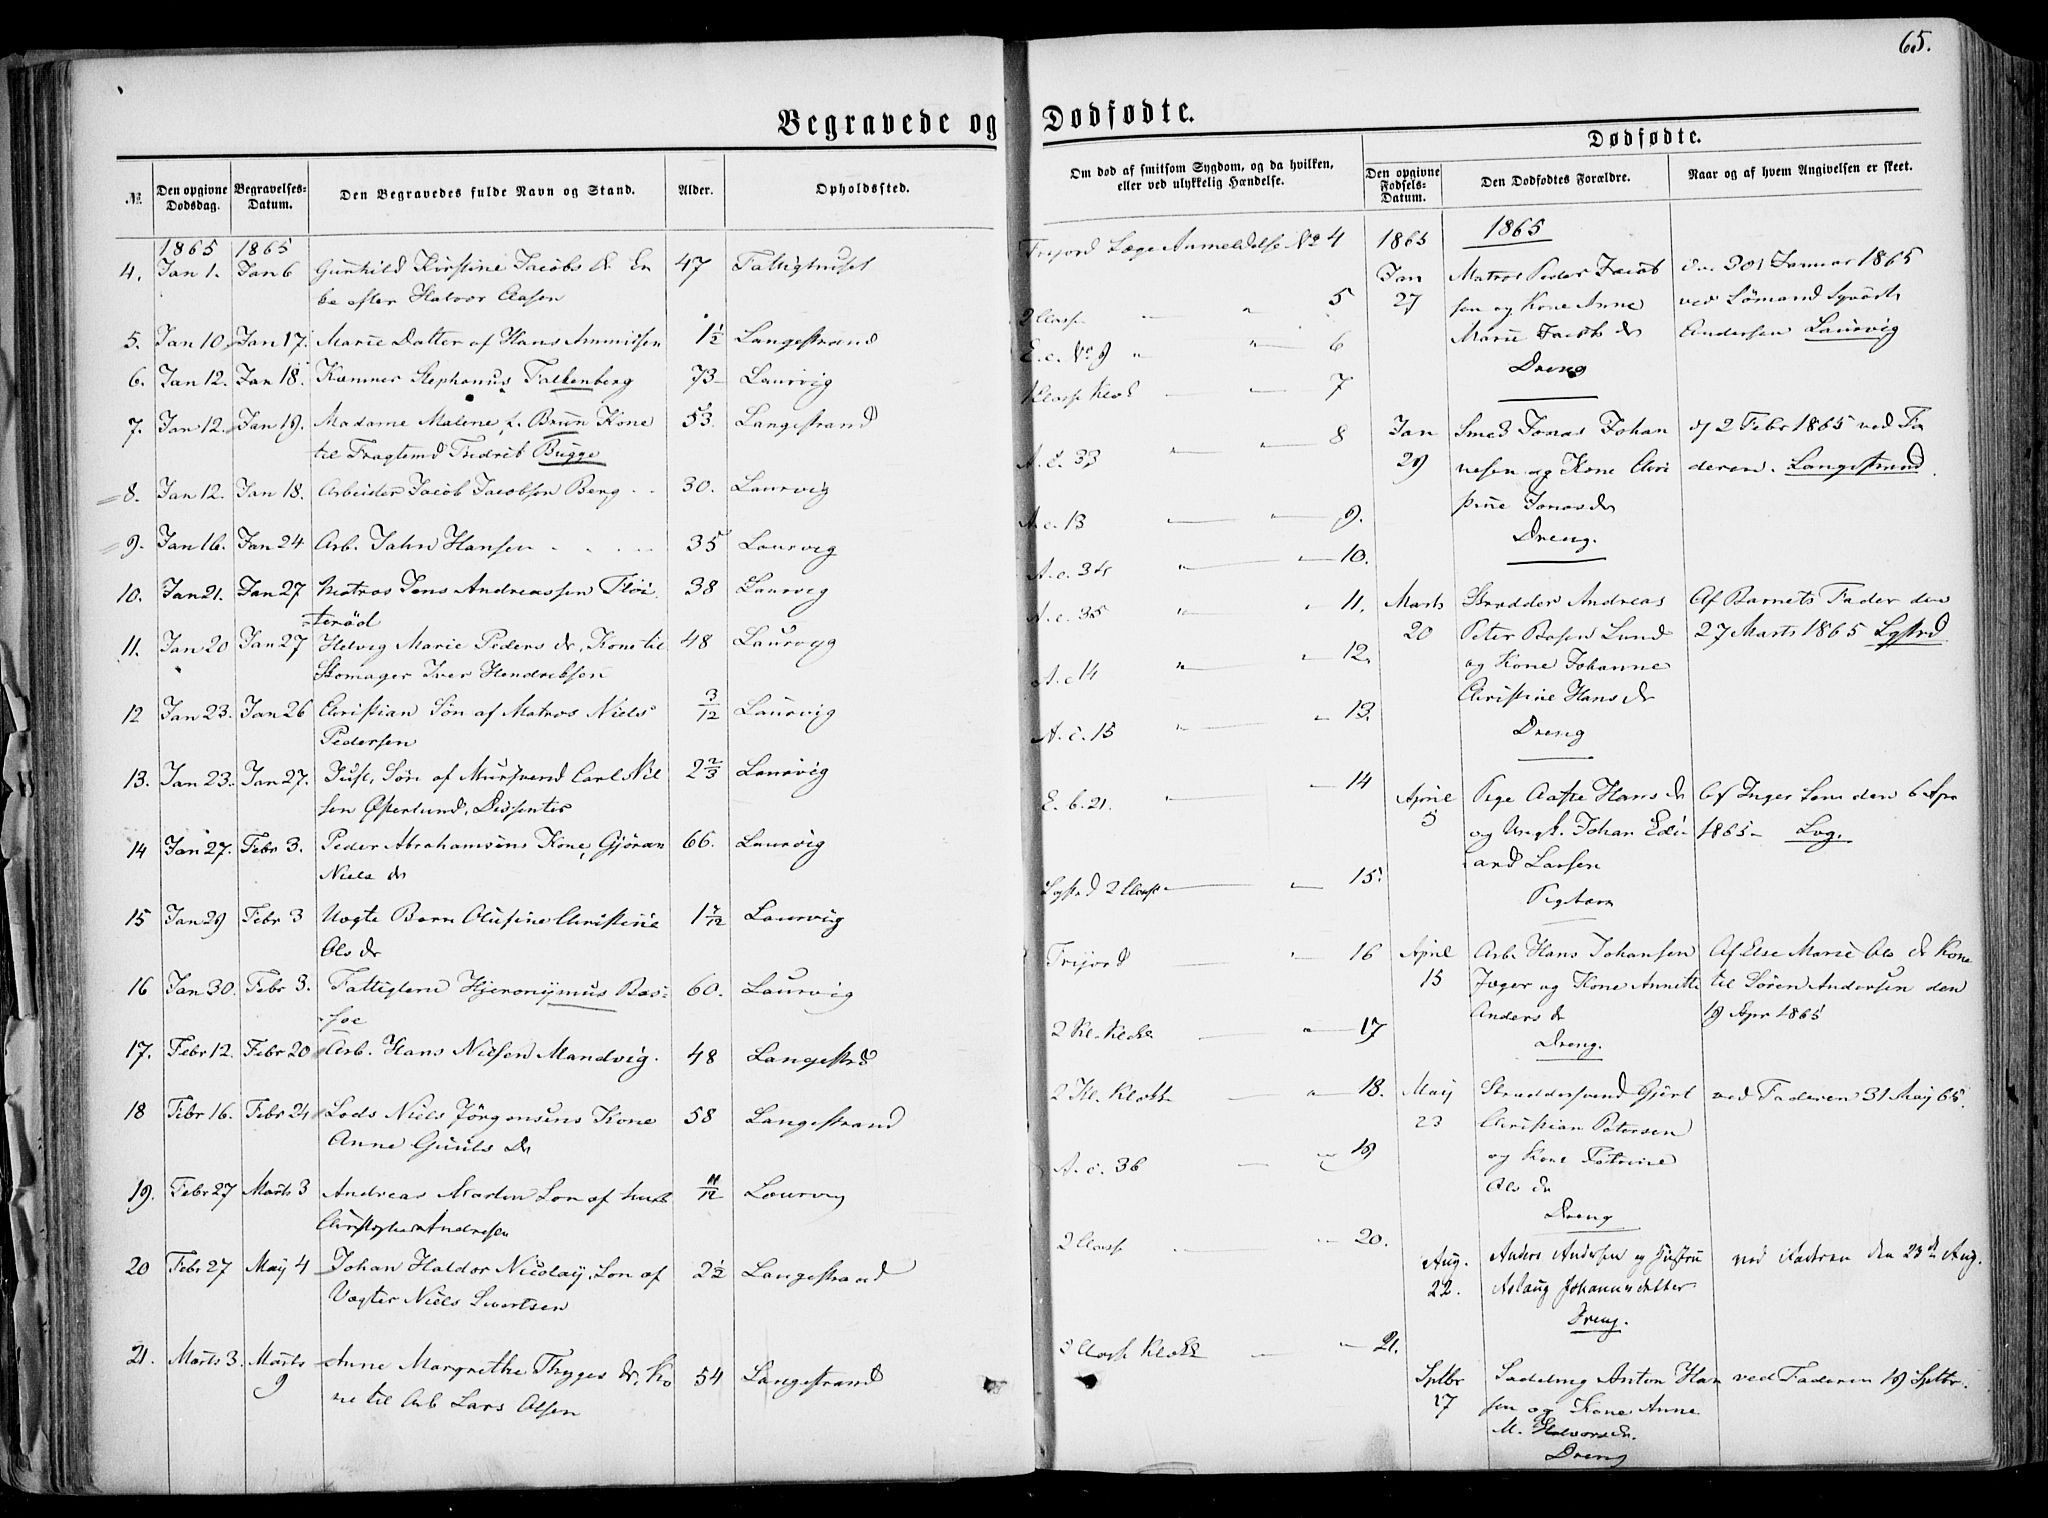 65.
Begravede og Dødfødte.
Dødfødte.
№ Den opgivne Dødsdag. Begravelses-Datum. Den Begravedes fulde Navn og Stand. Alder. Opholdssted.
1865 1865
4. Jan 1. Jan 6 Gunhild Kirstine Jacobs dr. En 47 Fattighuset
ke efter Halvor Aasen
5. Jan 10. Jan 17. Marie Datter af Hans 1½ Langestrand
6. Jan 12. Jan 18. Stephanus Falkenberg 73 Laurvig
7. Jan 12. Jan 19. Madame Malene f. Brun Kone 53. Langestrand
til Fragtemd Fredrik Bugge
8. Jan 12. Jan 18. Arbeider Jacob Jacobsen Berg 30. Laurvig
9. Jan 16. Jan 24 Arb. Jahn Hansen 35 Laurvig
10. Jan 21. Jan 27 Matros Jens Andreassen Floi 38 Laurvig
terød
11. Jan 20 Jan 27 Helvig Marie Peders dr, Kone til 48 Laurvig
Skomager Iver Hendriksen
12 Jan 23. Jan 26 Christian Søn af Matros Niels 3/12 Laurvig
Pedersen
13. Jan 23. Jan 27. Just, Søn af Mursvend Carl Nil 2⅔ Laurvig
sen Østerlund, Dissenter
14 Jan 27. Febr 3. Peder Abrahamsens Kone, Gjøran 66. Laurvig
Niels dr
15 Jan 29 Febr 3 Uægte Barn Olufine Christine 1 7/12 Laurvig
Ols dr
16 Jan 30. Febr 3. Fattiglem Hjeronymus Bas- 60. Laurvig
søe
17. Febr 12. Febr 20 Arb. Hans Nilsen Mandvig. 48 Langestrd
18 Febr 16. Febr 24 Lods Niels Jörgensens Kone 58 Langestrand
Anne Guuls Dr
19. Febr 27 Marts 3 Andreas Martin Søn af 11/12 Laurvig
Christopher Andresen
20 Febr 27 May 4 Johan Haldor Nicolay, Søn af 2½ Langestrand
Vægter Niels Sivertsen
21. Marts 3. Marts 9 Anne Margrethe Thyges dr, Ko 54 Langestrand
ne til Arb Lars Olsen
Om død af smitsom Sygdom, og da hvilken, eller ved ulykkelig Hændelse.
Læge Anmeldelse No 4
2 Classe " " 5
E.c. No 9 " " 6
1 Classe — — 7
A.c. 33 " " 8
A.c. 13 — — 9.
A.c. 34 " — 10.
A.c. 35 " " 11.
A.c 14 " — 12.
A.c. 15 " — 13.
E.b. 21. " — 14
2 Classe — — 15.
— — 16
2 Kl. — — 17
2 Kl. — — 18.
A.c. 36 — — 19
2 Classe — — 20.
Classe — — 21.
Den opgivne Fødsels-Datum. Den Dødfødtes Forældre. Naar og af hvem Angivelsen er skeet.
1865 1865
Jan 27 Matros Peder Jacob den 30t Januar 1865
sen og Kone Anne ved Sömand
Marie Jacobs dr Andersen Laurvig
Dreng
Jan 29 Smed Jonas Johan d 2 Febr 1865 ved Fa
nesen og Kone Chri deren. Langestrand
stine Jonas dr
Dreng.
Marts 20 Skrædder Andreas Af Barnets Fader den
Peter Boysen Lund 27 Marts 1865 Lgstrd
og Kone Johanne
Christine Hans dr
Dreng
April 5 Pige Hans dr Af Inger den 6 Apr
og Ungk. Johan Edv 1865 — Lvg.
ard Larsen
Pigebarn
April 15 Arb Hans Johansen Af Else Marie Ols dr Kone
Jæger og Kone Annette til Søren Andersen den
Anders dr 19 Apr 1865
Dreng.
May 23 Skræddersvend Gjert ved Faderen 31 May 65.
Christian Petersen
og Kone Petrine
Ols dr
Dreng
Aug. 22. Anders Andersen og Hustru ved Faderen den 23de Aug.
Aslaug Johannesdatter
Dreng.
Sptbr 17 Sadelmg Anton Han ved Faderen 19 Sptbr.
sen og Kone Anne
M. Halvorsdr.
Dreng